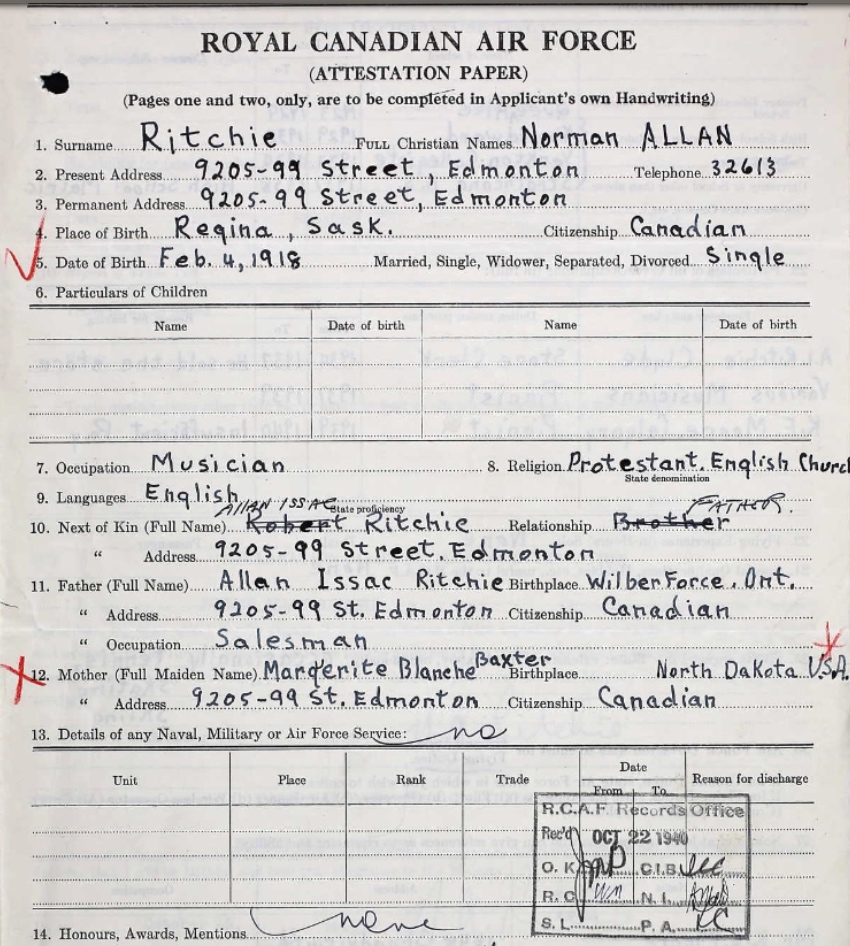 ROYAL CANADIAN AIR FORCE
(ATTESTATION PAPER)
(Pages one and two, only, are to be completed in Applicant's own Handwriting)
1. Surname Ritchie FULL Christian Names Norman ALLAN
2. Present Address 9205-99 Street, Edmonton Telephone 32613
3. Permanent Address 9205-99 Street, Edmonton
4. Place of Birth Regina, Sask. Citizenship Canadian
5. Date of Birth Feb. 4, 1918 Married, Single, Widower, Separated, Divorced Single
6. Particulars of Children
Name Date of birth Name Date of birth
7. Occupation Musician 8. Religion Protestant. English Church
State denomination
9. Languages English
State proficiency
ALLAN ISSAC FATHER.
10. Next of Kin (Full Name) Robert Ritchie Relationship Brother
" Address 9205-99 Street. Edmonton
11. Father (Full Name) Allan Issac Ritchie Birthplace WilberForce. Ont.
" Address 9205-99 St. Edmonton Citizenship Canadian
" Occupation Salesman
12. Mother (Full Maiden Name) Marguerite Blanche Baxter Birthplace North Dakota USA.
" Address 9205-99 St. Edmonton Citizenship Canadian
13. Details of any Naval, Military or Air Force Service: no
Unit Place Rank Trade Date Reason for discharge
From To
R.C.A.F. Records Office
Rec'd OCT 22 1940
O. K. C.I.B.
R. C. N. I.
S. L. P. A.
14. Honours, Awards, Mentions none